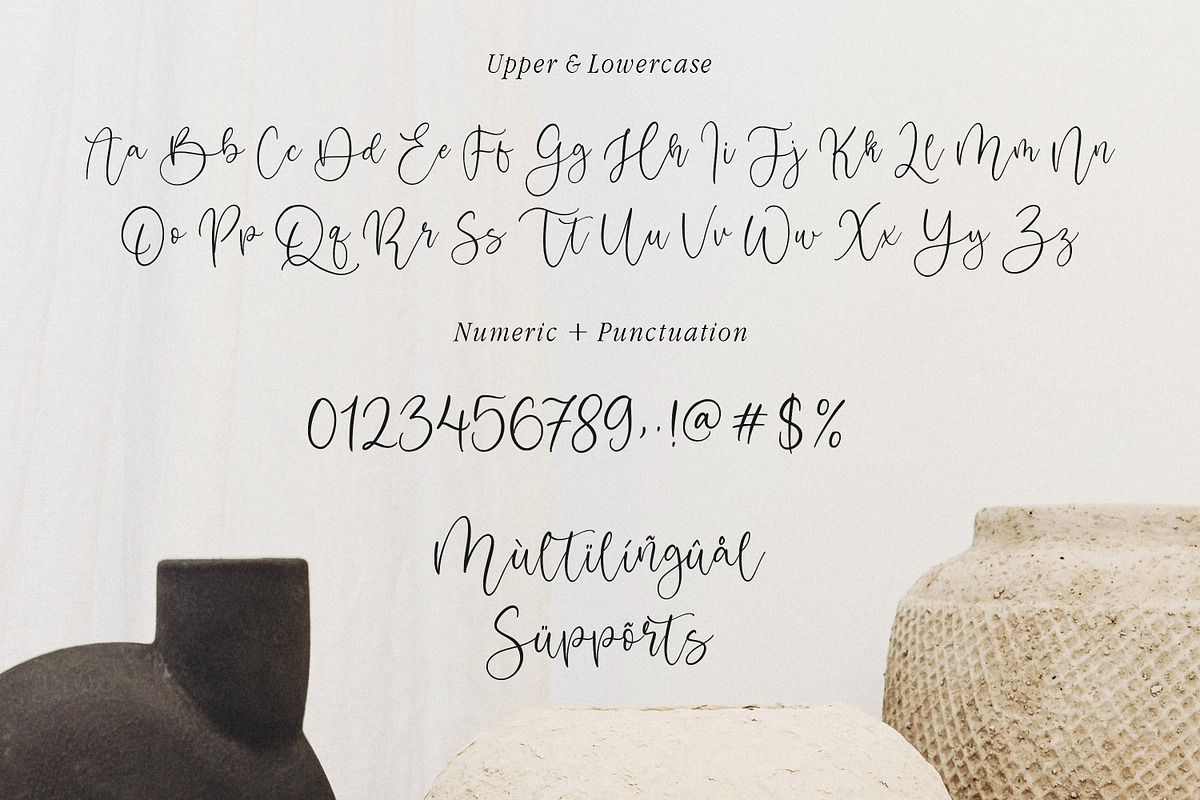 Upper & Lowercase
Aa Bb Cc Dd Ee Ff Gg Hh Ii Jj Kk Ll Mm Nn
Oo Pp Qq Rr Ss Tt Uu Vv Ww Xx Yy Zz
Numeric + Punctuation
0123456789,.!@#$%
Mùltïlíñgûål
Süppõrts